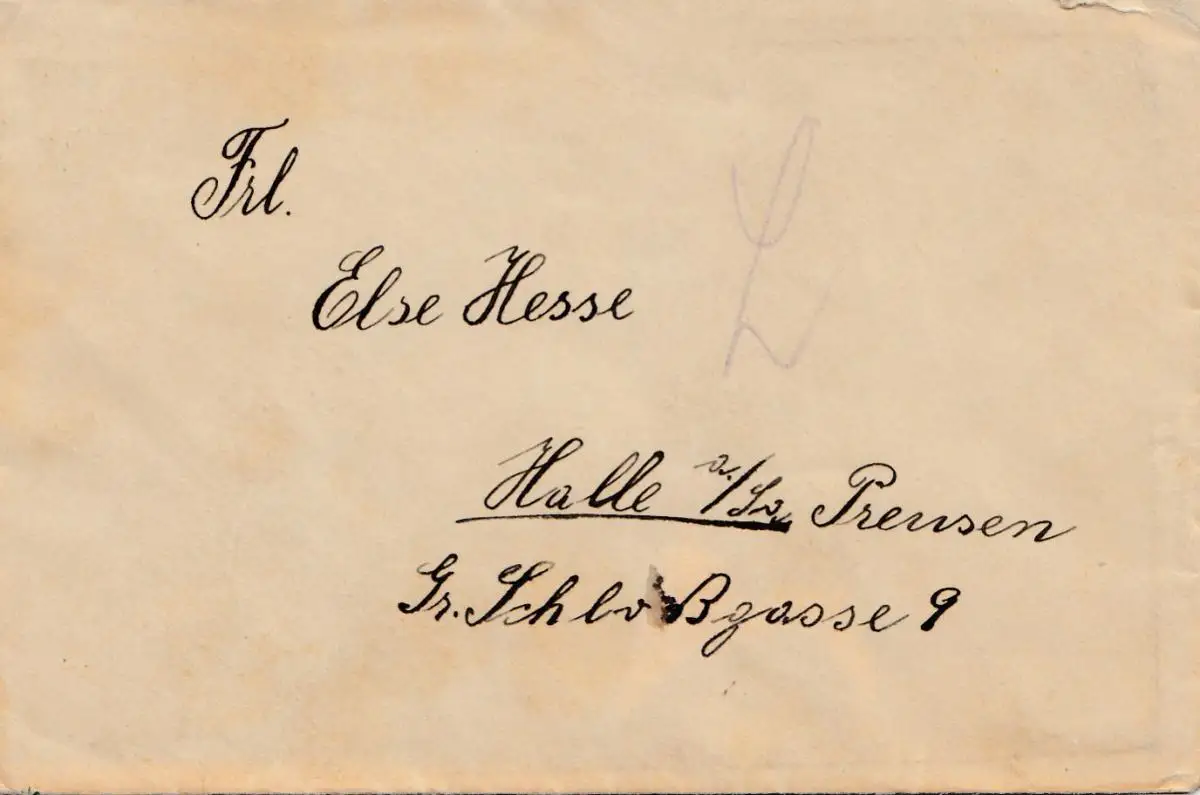 Frl.
Else Hesse
Halle a/S., Preusen
Gr. Schloßgasse 9